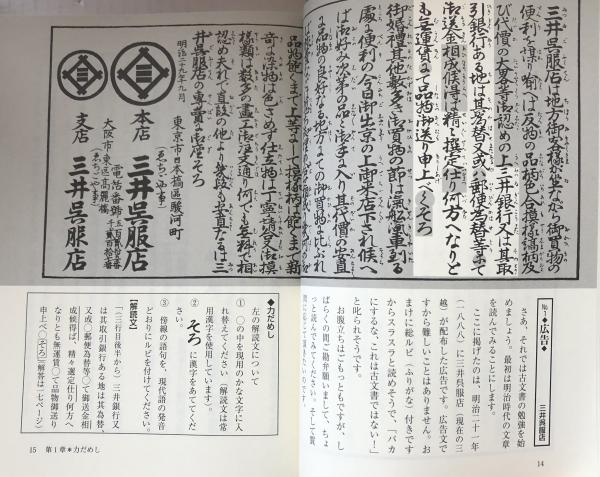 三井呉服店は地方御客様が坐ながら御買物の
便利を謀り喩へば反物の品柄色合摸様縞柄及
び代價の大畧等御認めの上三井銀行又は其取
引銀行ある地は其爲替又或ハ郵便爲替等まて
御送金相成候得は精々撰定仕り何方へなりと
も無運賃まて品物御送り申上べくそろ
御婚禮其他數多き御買物の節は滊船滊車到る
處に便利の今日御出京の上御來店下され候へ
ば御好み次第の品々御手に入り其代價の安直
に品物の良好なる地方まての御買物に比ぶれ
品物飽くまで上等まして摸様柄は飽くまで新
奇に染物は色さめず仕立物は丁寧に御摸
様類は數多の畫工御注文通り何ても無料で相
認め夫れで直段は他より幾段も安直なるは三
井呉服店の專賣に御座そろ
明治二十九年九月
東京市日本橋區駿河町
本店 三井呉服店
(ゑちごや事)
電話番號
大阪市東區高麗橋
支店 三井呉服店
(ゑちごや事)
№1◆広告◆
三井呉服店
さあ、それでは古文書の勉強を始
めましょう。最初は明治時代の文章
を読んでみることにします。
ここに掲げたのは、明治二十一年
(一八八八)に三井呉服店(現在の三
越)が配布した広告です。広告文で
すから難しいことはありません。お
まけにルビ(ふりがな)付きです
からスラスラと読めそうで、「バカ
にするな、これは古文書ではない!」
と叱られそうです。
お腹立ちはごもっともですが、し
ばらくの間ご勘弁願いまして、ちょ
っと読んでみてください。そして質
14
◆力だめし
左の解読文について
① ○の中を現用のかな文字に入
れ替えてください(解読文は常
用漢字を使用しています)。
② そろに漢字をあててくだ
さい。
③ 傍線の語句を、現代語の発音
どおりにルビを付けてください。
【解読文】
「(三行目後半から)三井銀行又
は其取引銀行ある地は其為替、
又或○郵便為替等○て御送金相
成候得ば、精々選定仕り何方へ
なりとも無運賃○て品物御送り
申上べ○そろ」(解答は一七ページ)
15 第1章*力だめし